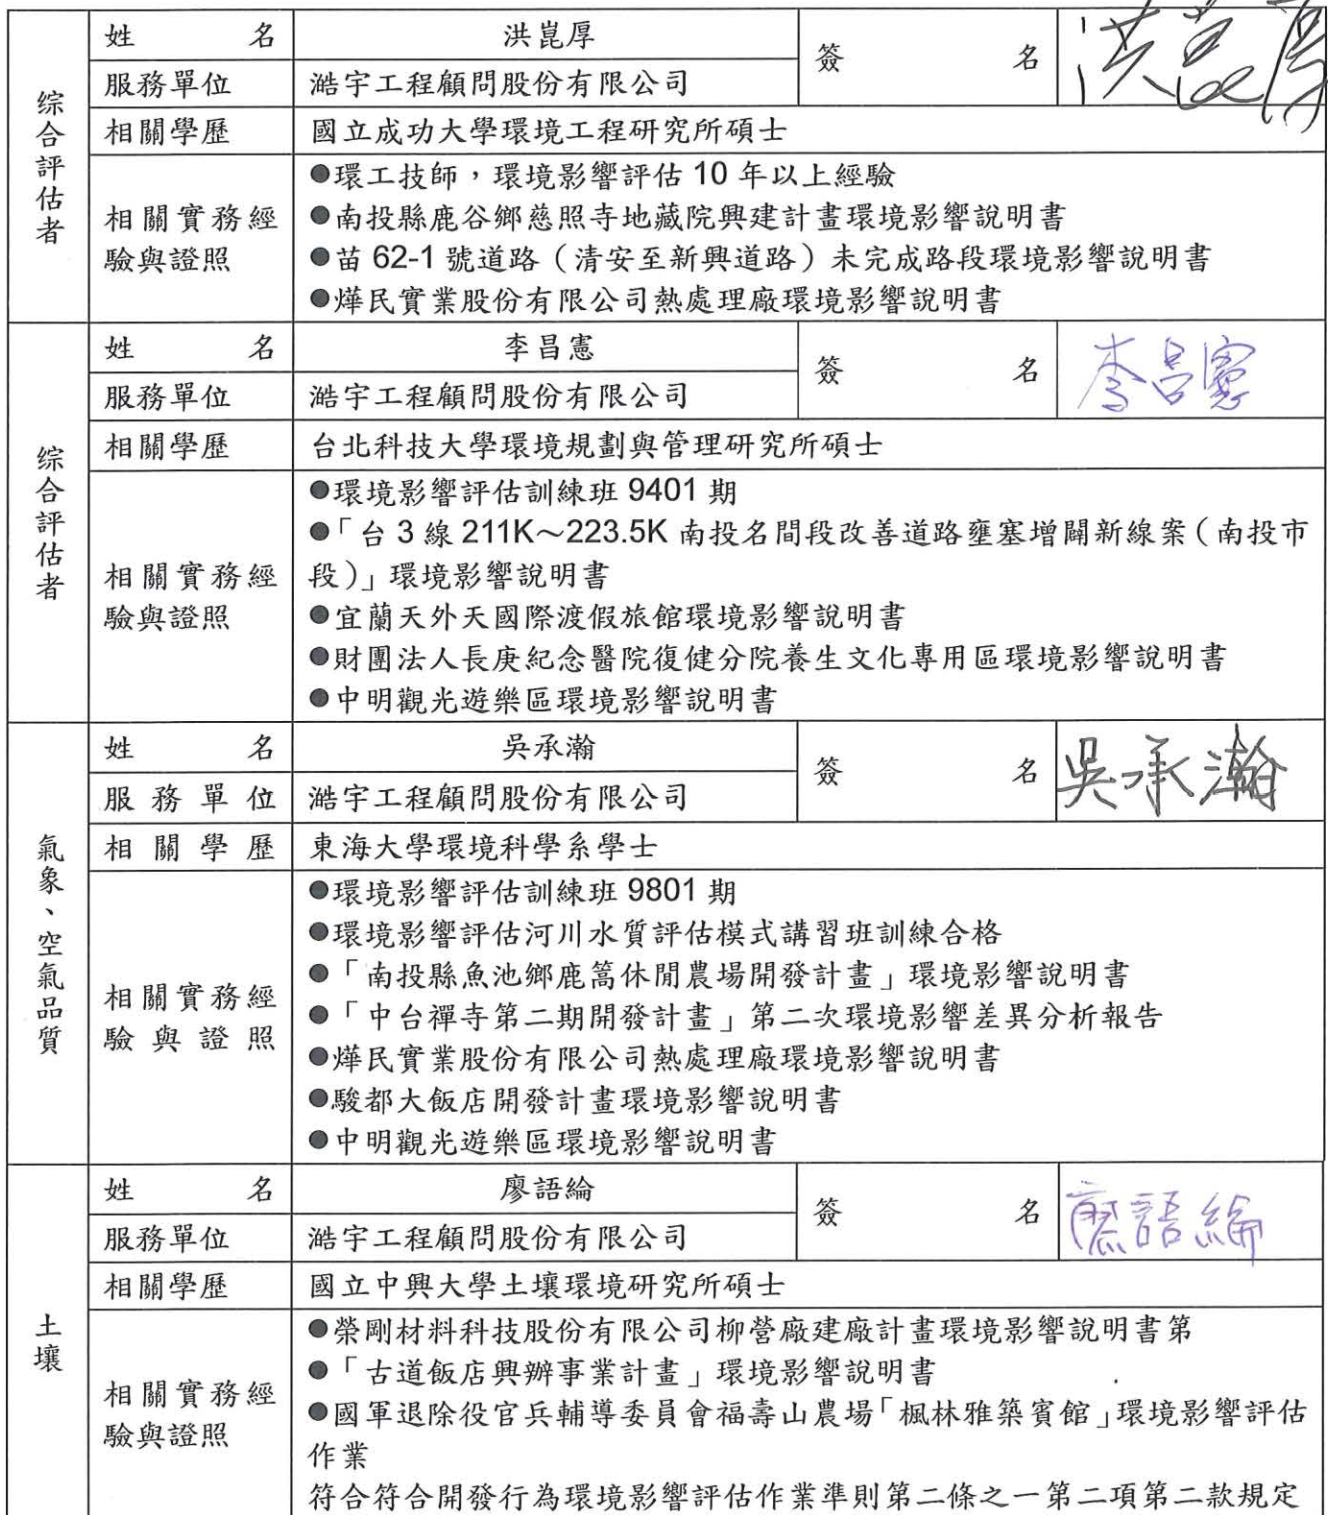 综合評估者
姓名 洪崑厚 簽名 洪崑厚
服務單位 澔宇工程顧問股份有限公司
相關學歷 國立成功大學環境工程研究所碩士
相關實務經
驗與證照
●環工技師，環境影響評估 10 年以上經驗
●南投縣鹿谷鄉慈照寺地藏院興建計畫環境影響說明書
●苗 62-1 號道路（清安至新興道路）未完成路段環境影響說明書
●燁民實業股份有限公司熱處理廠環境影響說明書
综合評估者
姓名 李昌憲 簽名 李昌憲
服務單位 澔宇工程顧問股份有限公司
相關學歷 台北科技大學環境規劃與管理研究所碩士
相關實務經
驗與證照
●環境影響評估訓練班 9401 期
●「台 3 線 211K～223.5K 南投名間段改善道路壅塞增闢新線案（南投市
段）」環境影響說明書
●宜蘭天外天國際渡假旅館環境影響說明書
●財團法人長庚紀念醫院復健分院養生文化專用區環境影響說明書
●中明觀光遊樂區環境影響說明書
氣象、空氣品質
姓名 吳承瀚 簽名 吳承瀚
服務單位 澔宇工程顧問股份有限公司
相關學歷 東海大學環境科學系學士
相關實務經
驗與證照
●環境影響評估訓練班 9801 期
●環境影響評估河川水質評估模式講習班訓練合格
●「南投縣魚池鄉鹿篙休閒農場開發計畫」環境影響說明書
●「中台禪寺第二期開發計畫」第二次環境影響差異分析報告
●燁民實業股份有限公司熱處理廠環境影響說明書
●駿都大飯店開發計畫環境影響說明書
●中明觀光遊樂區環境影響說明書
土壤
姓名 廖語綸 簽名 廖語綸
服務單位 澔宇工程顧問股份有限公司
相關學歷 國立中興大學土壤環境研究所碩士
相關實務經
驗與證照
●榮剛材料科技股份有限公司柳營廠建廠計畫環境影響說明書第
●「古道飯店興辦事業計畫」環境影響說明書
●國軍退除役官兵輔導委員會福壽山農場「楓林雅築賓館」環境影響評估
作業
符合符合開發行為環境影響評估作業準則第二條之一第二項第二款規定